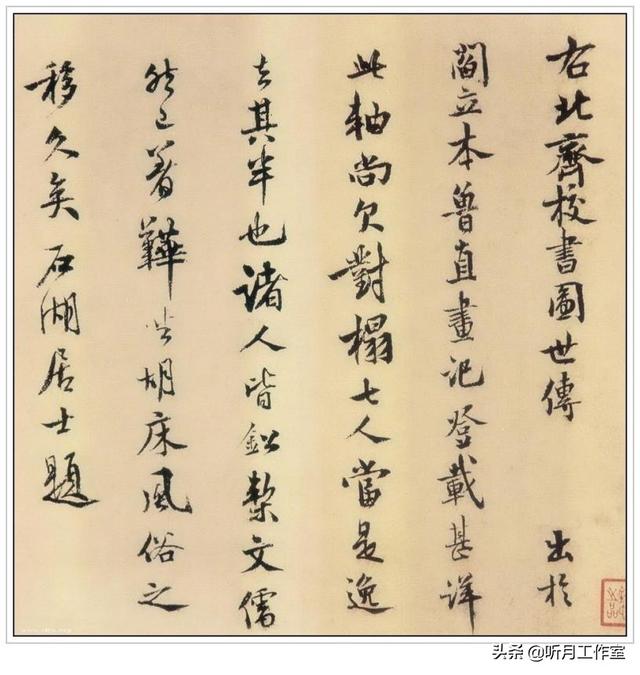 右北齊校書圖世傳 出於
閻立本魯直畫記登載甚詳
此軸尚欠對榻七人當是逸
去其半也諸人皆鈆槧文儒
然已著鞾坐胡床風俗之
移久矣石湖居士題
头条 @听月工作室